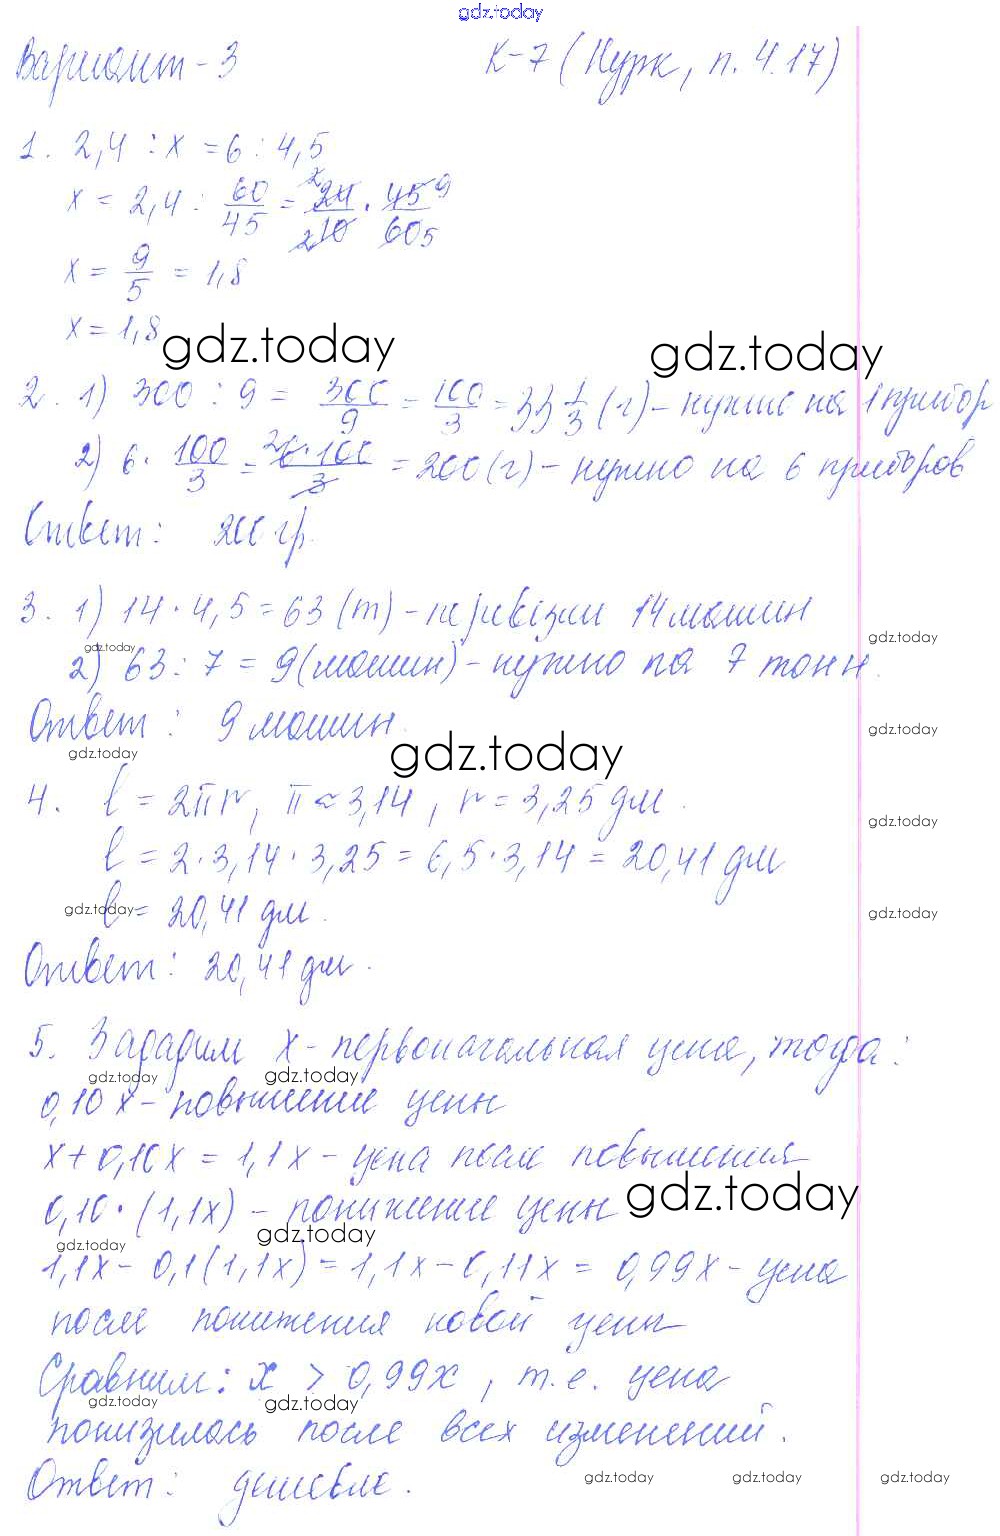 gdz.today
Вариант-3 К-7 (Нурк, п. 4.17)
1. 2,4 : x = 6 : 4,5
x = 2,4 : 60/45 = 24/10 · 45/60 2 2 9 5
x = 9/5 = 1,8
x = 1,8
gdz.today gdz.today
2. 1) 300 : 9 = 300/9 = 100/3 = 33 1/3 (г) - нужно на 1 прибор
2) 6 · 100/3 = 2 6·100/3 = 200 (г) - нужно на 6 приборов
Ответ: 200 гр.
3. 1) 14 · 4,5 = 63 (т) - перевезли 14 машин
gdz.today gdz.today
2) 63 : 7 = 9 (машин) - нужно на 7 тонн.
Ответ: 9 машин.
gdz.today
gdz.today gdz.today
4. l = 2πr, π ≈ 3,14, r = 3,25 дм.
gdz.today
l = 2 · 3,14 · 3,25 = 6,5 · 3,14 = 20,41 дм
gdz.today l = 20,41 дм. gdz.today
Ответ: 20,41 дм.
5. Зададим x - первоначальная цена, тогда:
gdz.today gdz.today
0,10x - повышение цены
x + 0,10x = 1,1x - цена после повышения
0,10 · (1,1x) - понижение цены gdz.today
gdz.today gdz.today
1,1x - 0,1(1,1x) = 1,1x - 0,11x = 0,99x - цена
после понижения новой цены
Сравним: x > 0,99x, т.е. цена
gdz.today gdz.today
понизилась после всех изменений.
Ответ: дешевле.
gdz.today gdz.today gdz.today